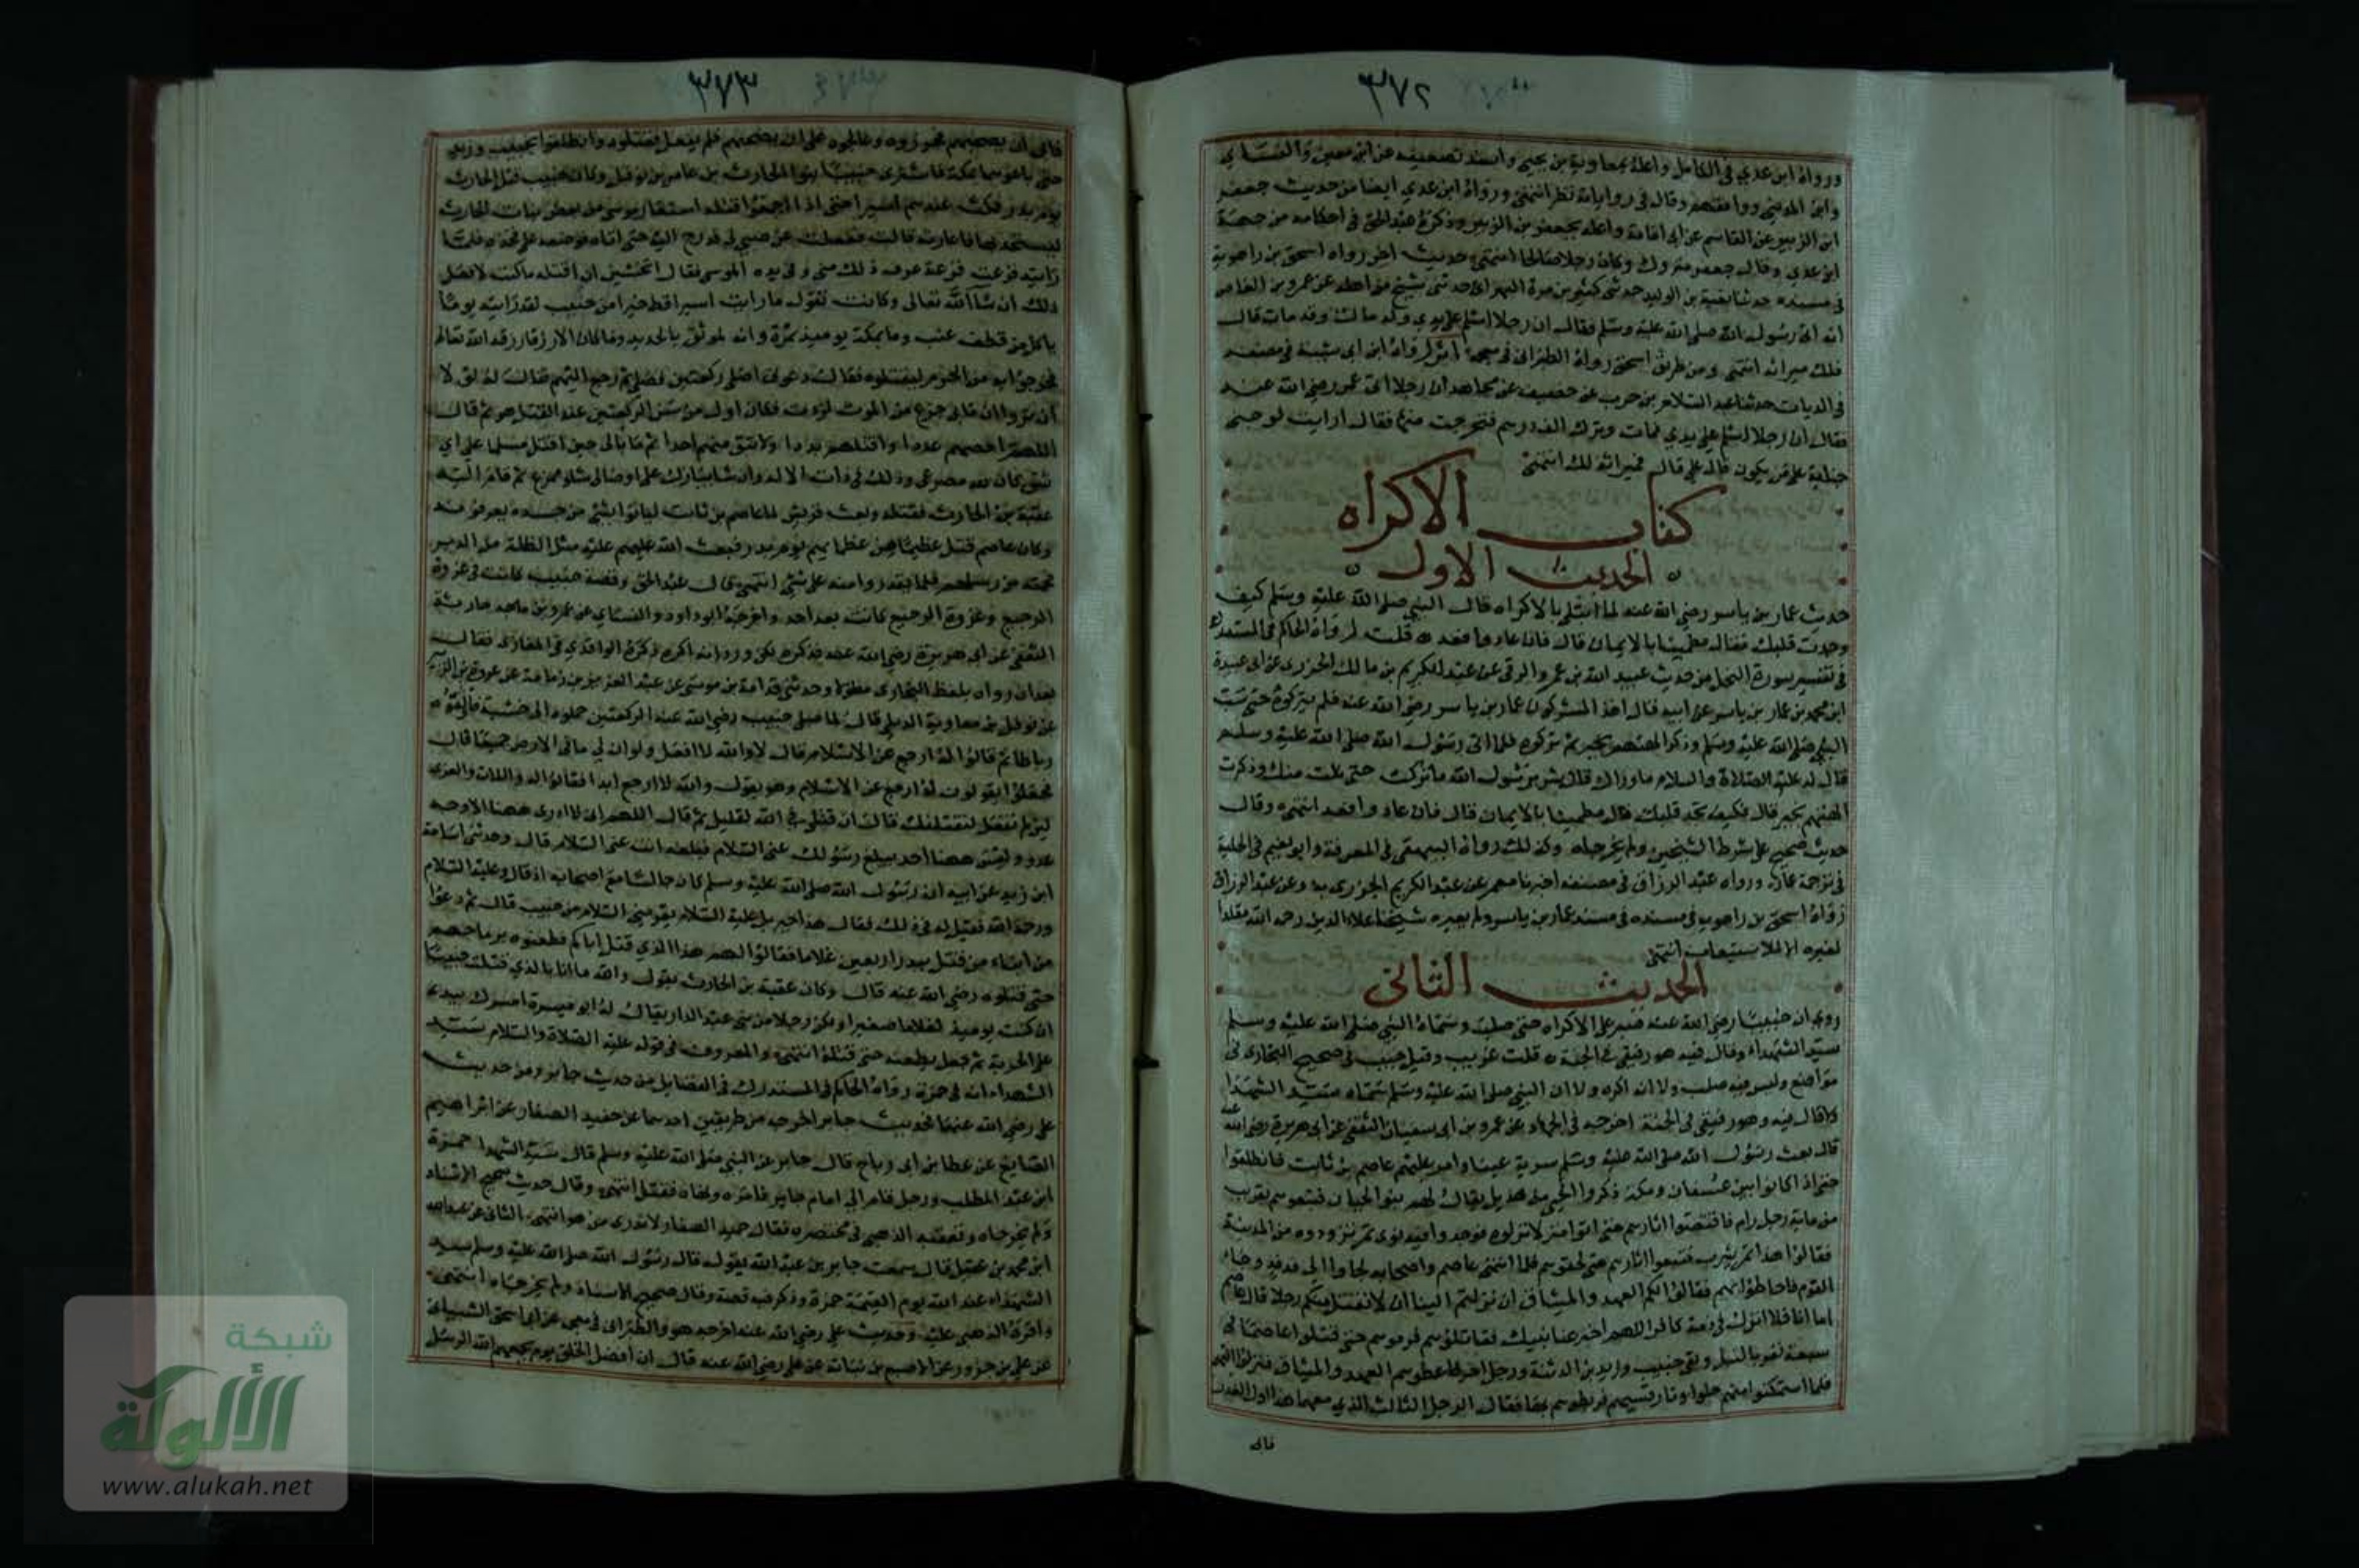 ٣٧٢
ورواه ابن عدي في الكامل واعله بمعاوية بن يحيى واسند تضعيفه عن ابن معين والنسائي
وابن المديني ووافقهم وقال في رواياته نظر انتهى ورواه ابن عدي ايضا من حديث جعفر
ابن الزبير عن القاسم عن ابي امامة واعله بجعفر بن الزبير وذكره عبد الحق في احكامه من جهة
ابن عدي وقال جعفر متروك وكان رجلا صالحا انتهى حديث اخر رواه اسحق بن راهوية
في مسنده حدثنا بقية بن الوليد حدثني كثير بن مرة البهراني حدثني شيخ من اهله عن عمرو بن العاص
انه اتى رسول الله صلى الله عليه وسلم فقال ان رجلا اسلم على يدي وله مال وقد مات قال
فلك ميراثه انتهى ومن طريق اسحق رواه الطبراني في معجمه اثر رواه ابن ابي شيبة في مصنفه
في الديات حدثنا عبد السلام بن حرب عن خصيف عن مجاهد ان رجلا اتى عمر رضي الله عنه
فقال ان رجلا اسلم على يدي فمات وترك الف درهم فتحرجت منها فقال ارايت لو جنى
جناية على من يكون قال علي قال فميراثه لك انتهى
كتاب الاكراه
الحديث الاول
حديث عمار بن ياسر رضي الله عنه لما ابتلي بالاكراه قال النبي صلى الله عليه وسلم كيف
وجدت قلبك فقال مطمينا بالايمان قال فان عادوا فعد قلت رواه الحاكم في المستدرك
في تفسير سورة النحل من حديث عبيد الله بن عمرو الرقي عن عبد الكريم بن مالك الجزري عن ابي عبيدة
ابن محمد بن عمار بن ياسر عن ابيه قال اخذ المشركون عمار بن ياسر رضي الله عنه فلم يتركوه حتى سب
النبي صلى الله عليه وسلم وذكر الهتهم بخير ثم تركوه فلما اتى رسول الله صلى الله عليه وسلم
قال له عليه الصلاة والسلام ما وراك قال شر يرسول الله ما تركت حتى نلت منك وذكرت
الهتهم بخير قال فكيف تجد قلبك قال مطمينا بالايمان قال فان عادوا فعد انتهى وقال
حديث صحيح على شرط الشيخين ولم يخرجاه وكذلك رواه البيهقي في المعرفة وابو نعيم في الحلية
في ترجمة عمار ورواه عبد الرزاق في مصنفه اخبرنا معمر عن عبد الكريم الجزري به وعن عبد الرزاق
رواه اسحق بن راهويه في مسنده في مسند عمار بن ياسر ولم يعزه شيخنا علاء الدين رحمه الله مقلدا
لغيره الا للاستيعاب انتهى
الحديث الثاني
روي ان خبيبا رضي الله عنه صبر على الاكراه حتى صلب وسماه النبي صلى الله عليه وسلم
سيد الشهداء وقال فيه هو رفيقي في الجنة قلت غريب وقتل خبيب في صحيح البخاري في
مواضع وليس فيه صلب ولا انه اكره ولا ان النبي صلى الله عليه وسلم سماه سيد الشهدا
ولا قال فيه وهو رفيقي في الجنة اخرجه في الجهاد عن عمرو بن ابي سفيان الثقفي عن ابي هريرة رضي الله عنه
قال بعث رسول الله صلى الله عليه وسلم سرية عينا وامر عليهم عاصم بن ثابت فانطلقوا
حتى اذا كانوا بين عسفان ومكة ذكروا لحي من هذيل يقال لهم بنو لحيان فتبعوهم بقريب
من ماية رجل رام فاقتصوا اثارهم حتى اتوا منزلا نزلوه فوجدوا فيه نوى تمر تزودوه من المدينة
فقالوا هذا تمر يثرب فتبعوا اثارهم حتى لحقوهم فلما انتهى عاصم واصحابه لجاوا الى فدفد وجاء
القوم فاحاطوا بهم فقالوا لكم العهد والميثاق ان نزلتم الينا ان لا نقتل منكم رجلا قال عاصم
اما انا فلا انزل في ذمة كافر اللهم اخبر عنا نبيك فقاتلوهم فرموهم حتى قتلوا عاصما في
سبعة نفر بالنبل وبقي خبيب وزيد بن الدثنة ورجل اخر فاعطوهم العهد والميثاق فنزلوا اليهم
فلما استمكنوا منهم حلوا اوتار قسيهم فربطوهم بها فقال الرجل الثالث الذي معهما هذا اول الغدر
فابى
٣٧٣
فابى ان يصحبهم فجرروه وعالجوه على ان يصحبهم فلم يفعل فقتلوه وانطلقوا بخبيب وزيد
حتى باعوهما بمكة فاشترى خبيبا بنو الحارث بن عامر بن نوفل وكان خبيب قتل الحارث
يوم بدر فمكث عندهم اسيرا حتى اذا اجمعوا قتله استعار موسى من بعض بنات الحارث
ليستحد بها فاعارته قالت فغفلت عن صبي لي فدرج اليه حتى اتاه فوضعه على فخذه فلما
رايته فزعت فزعة عرف ذلك مني وفي يده الموسى فقال اتخشين ان اقتله ما كنت لافعل
ذلك ان شا الله تعالى وكانت تقول ما رايت اسيرا قط خيرا من خبيب لقد رايته يوما
ياكل من قطف عنب وما بمكة يوميذ ثمرة وانه لموثق بالحديد وما كان الا رزقا رزقه الله تعالى
فخرجوا به من الحرم ليقتلوه فقال دعوني اصلي ركعتين فصلى ثم رجع اليهم فقال لولا
ان تروا ان مابي جزع من الموت لزدت فكان اول من سن الركعتين عند القتل هو ثم قال
اللهم احصهم عددا واقتلهم بددا ولا تبق منهم احدا ثم قال ما ابالي حين اقتل مسلما على اي
شق كان لله مصرعي وذلك في ذات الاله وان يشا يبارك على اوصال شلو ممزع ثم قام اليه
عقبة بن الحارث فقتله وبعث قريش لما عاصم بن ثابت لياتوا بشي من جسده يعرفونه
وكان عاصم قتل عظيما من عظمايهم يوم بدر فبعث الله عليهم عليه مثل الظلة من الدبر
فحمته من رسلهم فلم يقدروا منه على شي انتهى قال عبد الحق وقصة خبيب كانت في غزوة
الرجيع وغزوة الرجيع كانت بعد احد واخرجه ابو داود والنسائي عن عمرو بن جارية
الثقفي عن ابي هريرة رضي الله عنه فذكره لكن ورد انه اكره ذكره الواقدي في المغازي فقال
بعد ان رواه بلفظ البخاري مطولا وحدثني قدامة بن موسى عن عبد العزيز بن رمانة عن عروة بن الزبير
عن نوفل بن معاوية الديلي قال لما صلى خبيب رضي الله عنه الركعتين حملوه الى خشبة فاوثقوه
رباطا ثم قالوا له ارجع عن الاسلام قال لا والله لا افعل ولو ان لي ما في الارض جميعا قال
فجعلوا يقولون له ارجع عن الاسلام وهو يقول والله لا ارجع ابدا فقالوا له واللات والعزى
لين لم تفعل لنقتلنك قال ان قتلي في الله لقليل ثم قال اللهم اني لا ارى ههنا الا وجه
عدو وليس ههنا احد يبلغ رسولك عني السلام فبلغه انت عني السلام قال وحدثني اسامة
ابن زيد عن ابيه ان رسول الله صلى الله عليه وسلم كان جالسا مع اصحابه اذ قال وعليه السلام
ورحمة الله فقيل له في ذلك فقال هذا جبريل عليه السلام يقريني السلام من خبيب قال ثم دعوا
من ابناء من قتل ببدر اربعين غلاما فقالوا لهم هذا الذي قتل اباكم فطعنوه برماحهم
حتى قتلوه رضي الله عنه قال وكان عقبة بن الحارث يقول والله ما انا بالذي قتلت خبيبا
ان كنت يوميذ لغلاما صغيرا ولكن رجلا من بني عبد الدار يقال له ابو ميسرة امسك بيدي
على الحربة ثم جعل يطعنه حتى قتله انتهى والمعروف في قوله عليه الصلاة والسلام سيد
الشهداء انه في حمزة رواه الحاكم في المستدرك في الفضايل من حديث جابر ومن حديث
علي رضي الله عنهما فحديث جابر اخرجه من طريقين احدهما عن حفيد الصفار عن ابراهيم
الصايغ عن عطا بن ابي رباح قال جابر عن النبي صلى الله عليه وسلم قال سيد الشهدا حمزة
ابن عبد المطلب ورجل قام الى امام جاير فامره ونهاه فقتل انتهى وقال حديث صحيح الاسناد
ولم يخرجاه وتعقبه الذهبي في مختصره فقال حفيد الصفار لا ندري من هو انتهى الثاني عن عبد الله
ابن محمد بن عقيل قال سمعت جابر بن عبد الله يقول قال رسول الله صلى الله عليه وسلم سيد
الشهداء عند الله يوم القيمة حمزة وذكر فيه قصة وقال صحيح الاسناد ولم يخرجاه انتهى
واقره الذهبي عليه وحديث علي رضي الله عنه اخرجه هو والطبراني في معجمه عن ابي اسحق الشيباني
عن علي بن حزور عن الاصبغ بن نباتة عن علي رضي الله عنه قال ان افضل الخلق يوم يجمعهم الله الرسل
شبكة
الألوكة
www.alukah.net